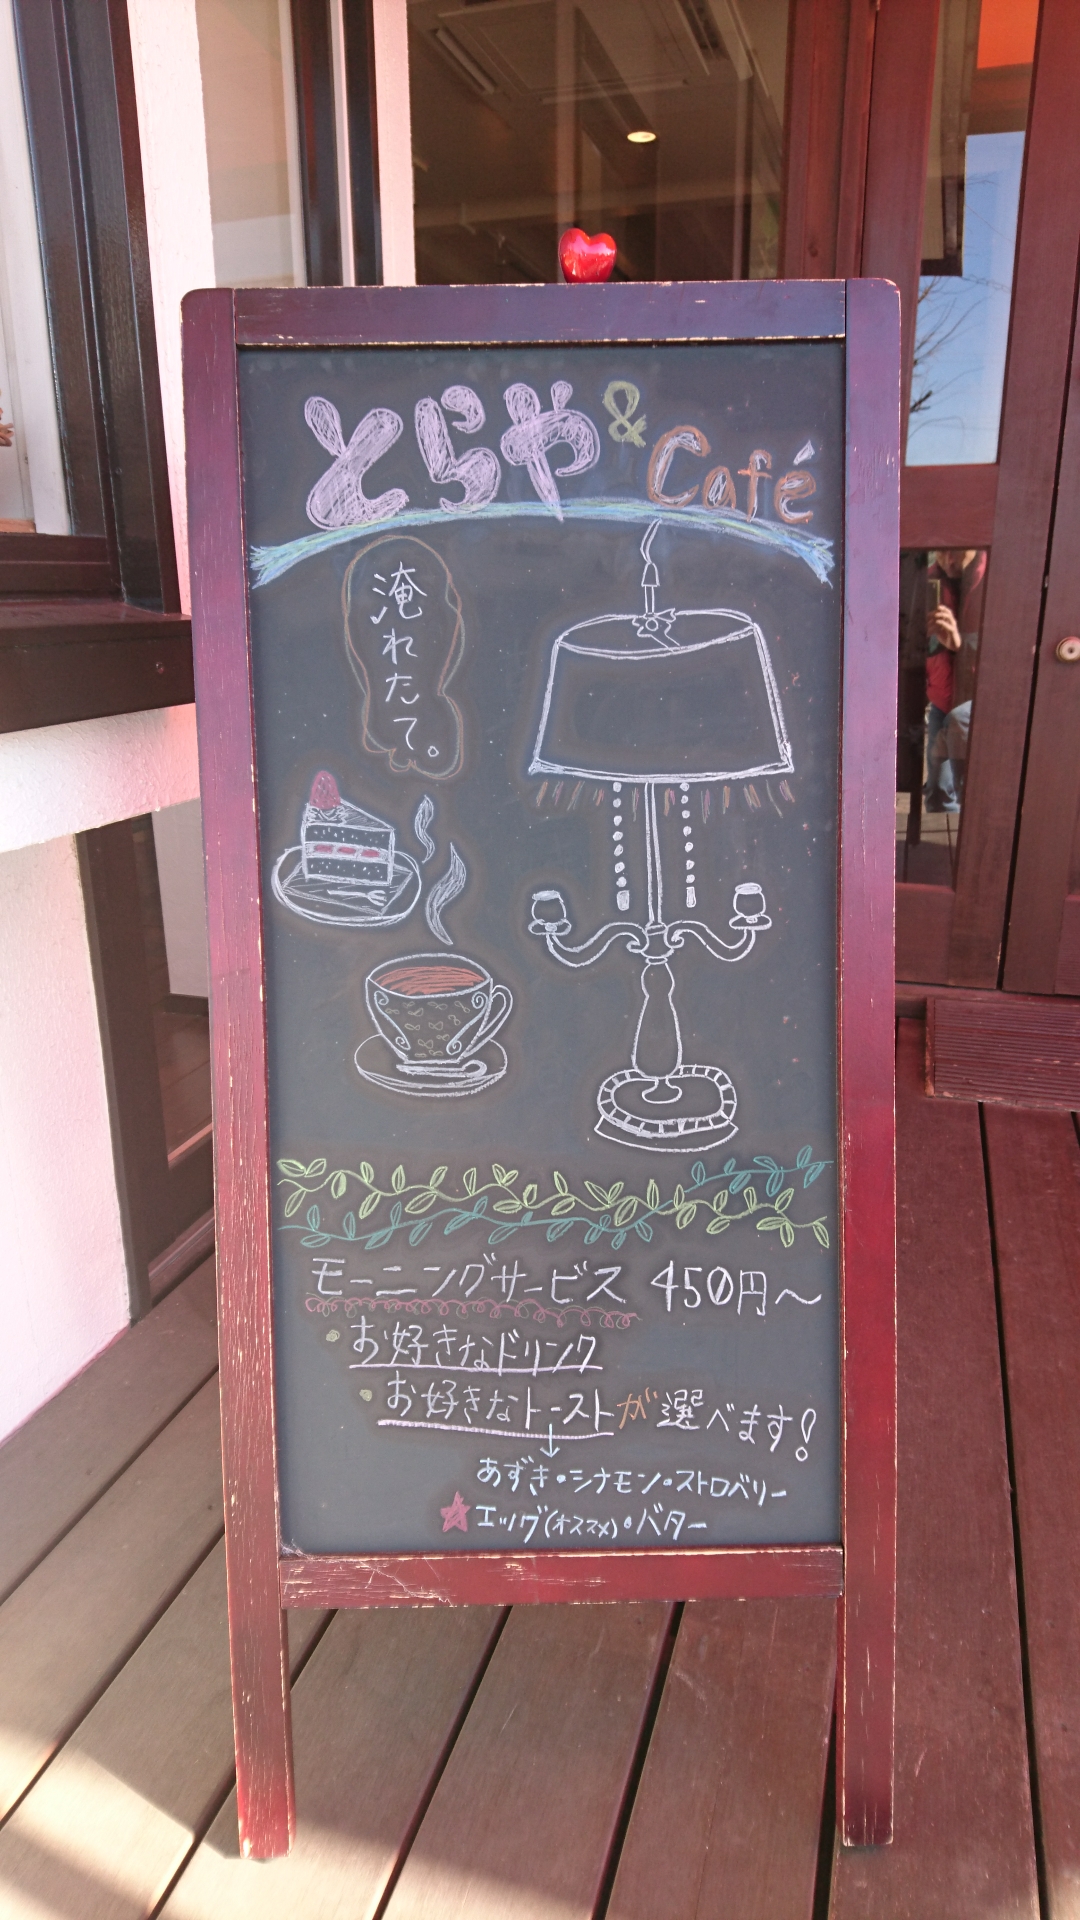 とらや&Café
淹れたて。
モーニングサービス 450円〜
・お好きなドリンク
・お好きなトーストが選べます!
↓
あずき・シナモン・ストロベリー
★エッグ(オススメ)・バター